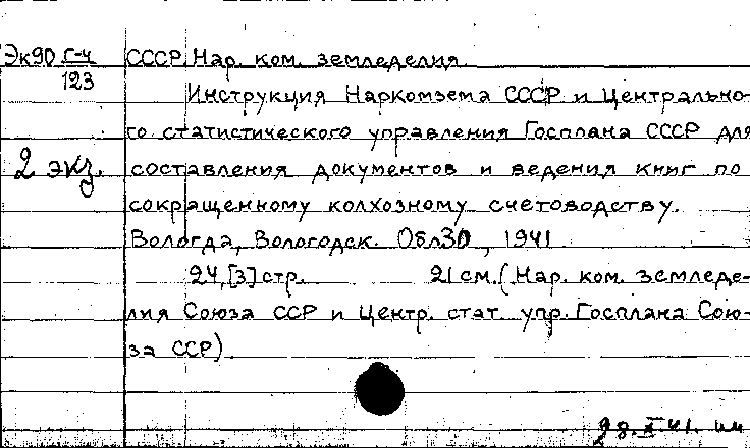 Эк90 Г-4 СССР. Нар. ком. земледелия.
123
Инструкция Наркомзема СССР и Центрально-
го статистического управления Госплана СССР для
2 экз. составления документов и ведения книг по
сокращенному колхозному счетоводству.
Вологда, Вологодск. Обл30, 1941
24,[3] стр. 21 см. (Нар. ком. земледе-
лия Союза ССР и Центр. стат. упр. Госплана Сою-
за ССР).